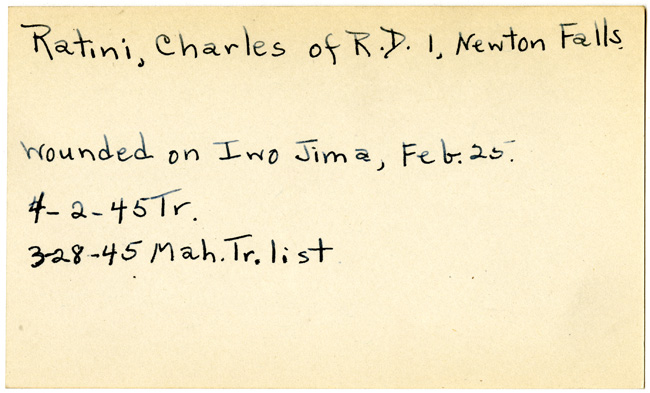 Ratini, Charles of R.D. 1, Newton Falls.
Wounded on Iwo Jima, Feb. 25.
4-2-45 Tr.
3-28-45 Mah. Tr. list